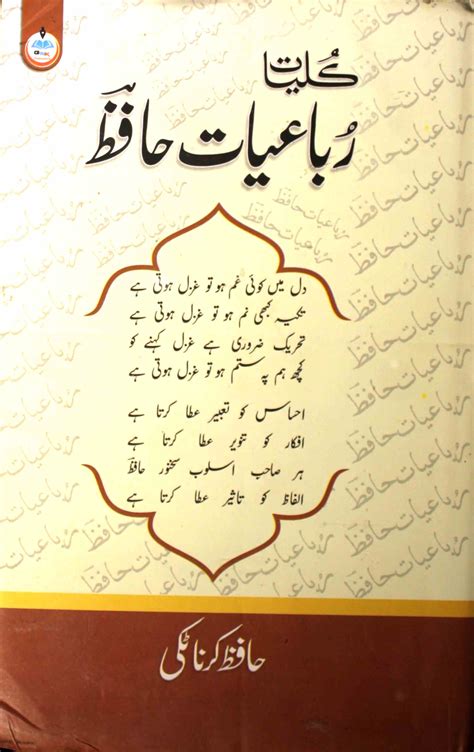 کلیات
رُباعیات حافظؔ
دل میں کوئی غم ہو تو غزل ہوتی ہے
تکیہ کبھی نم ہو تو غزل ہوتی ہے
تحریک ضروری ہے غزل کہنے کو
کچھ ہم پہ ستم ہو تو غزل ہوتی ہے
احساس کو تعبیر عطا کرتا ہے
افکار کو تنویر عطا کرتا ہے
ہر صاحب اسلوب سخنور حافظؔ
الفاظ کو تاثیر عطا کرتا ہے
حافظ کرناٹکی